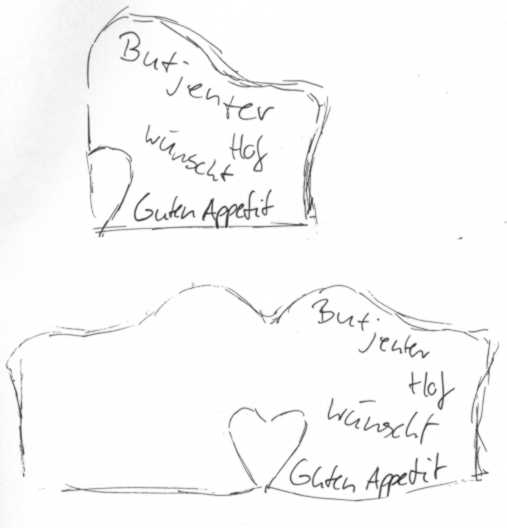 But-
jenter
Hof
wünscht
Guten Appetit
But-
jenter
Hof
wünscht
Guten Appetit